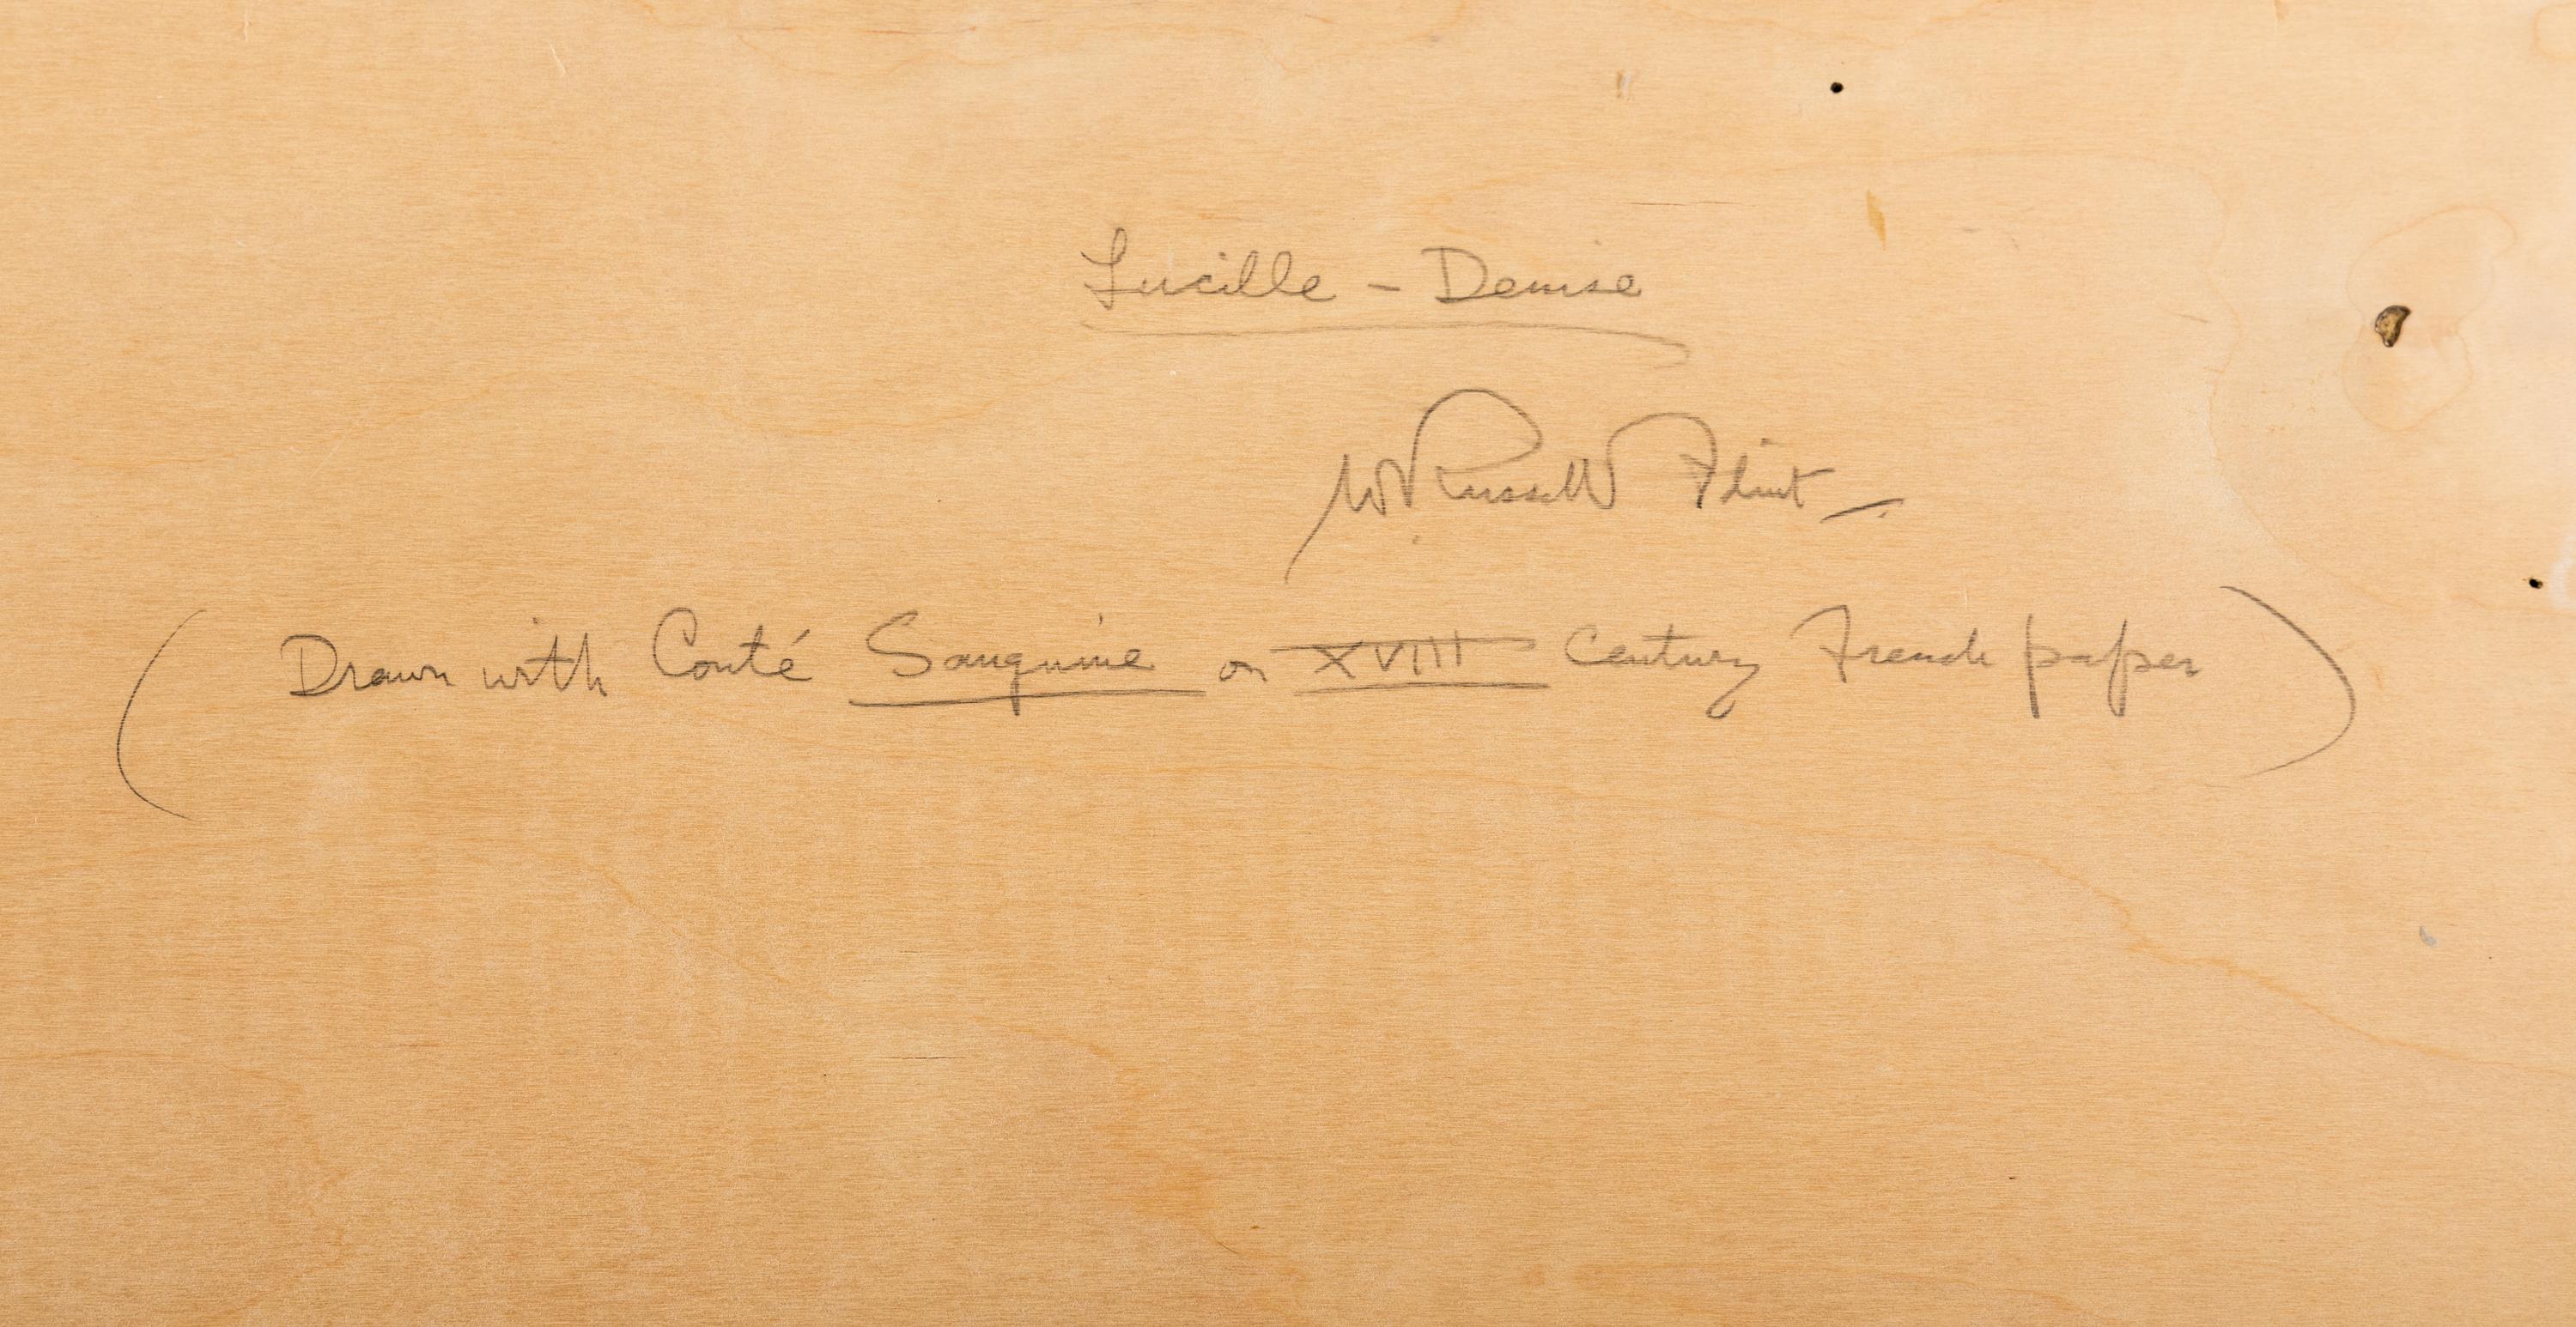 Lucille - Denise
W Russell Flint -
( Drawn with Conté Sanguine on XVIII Century French paper )